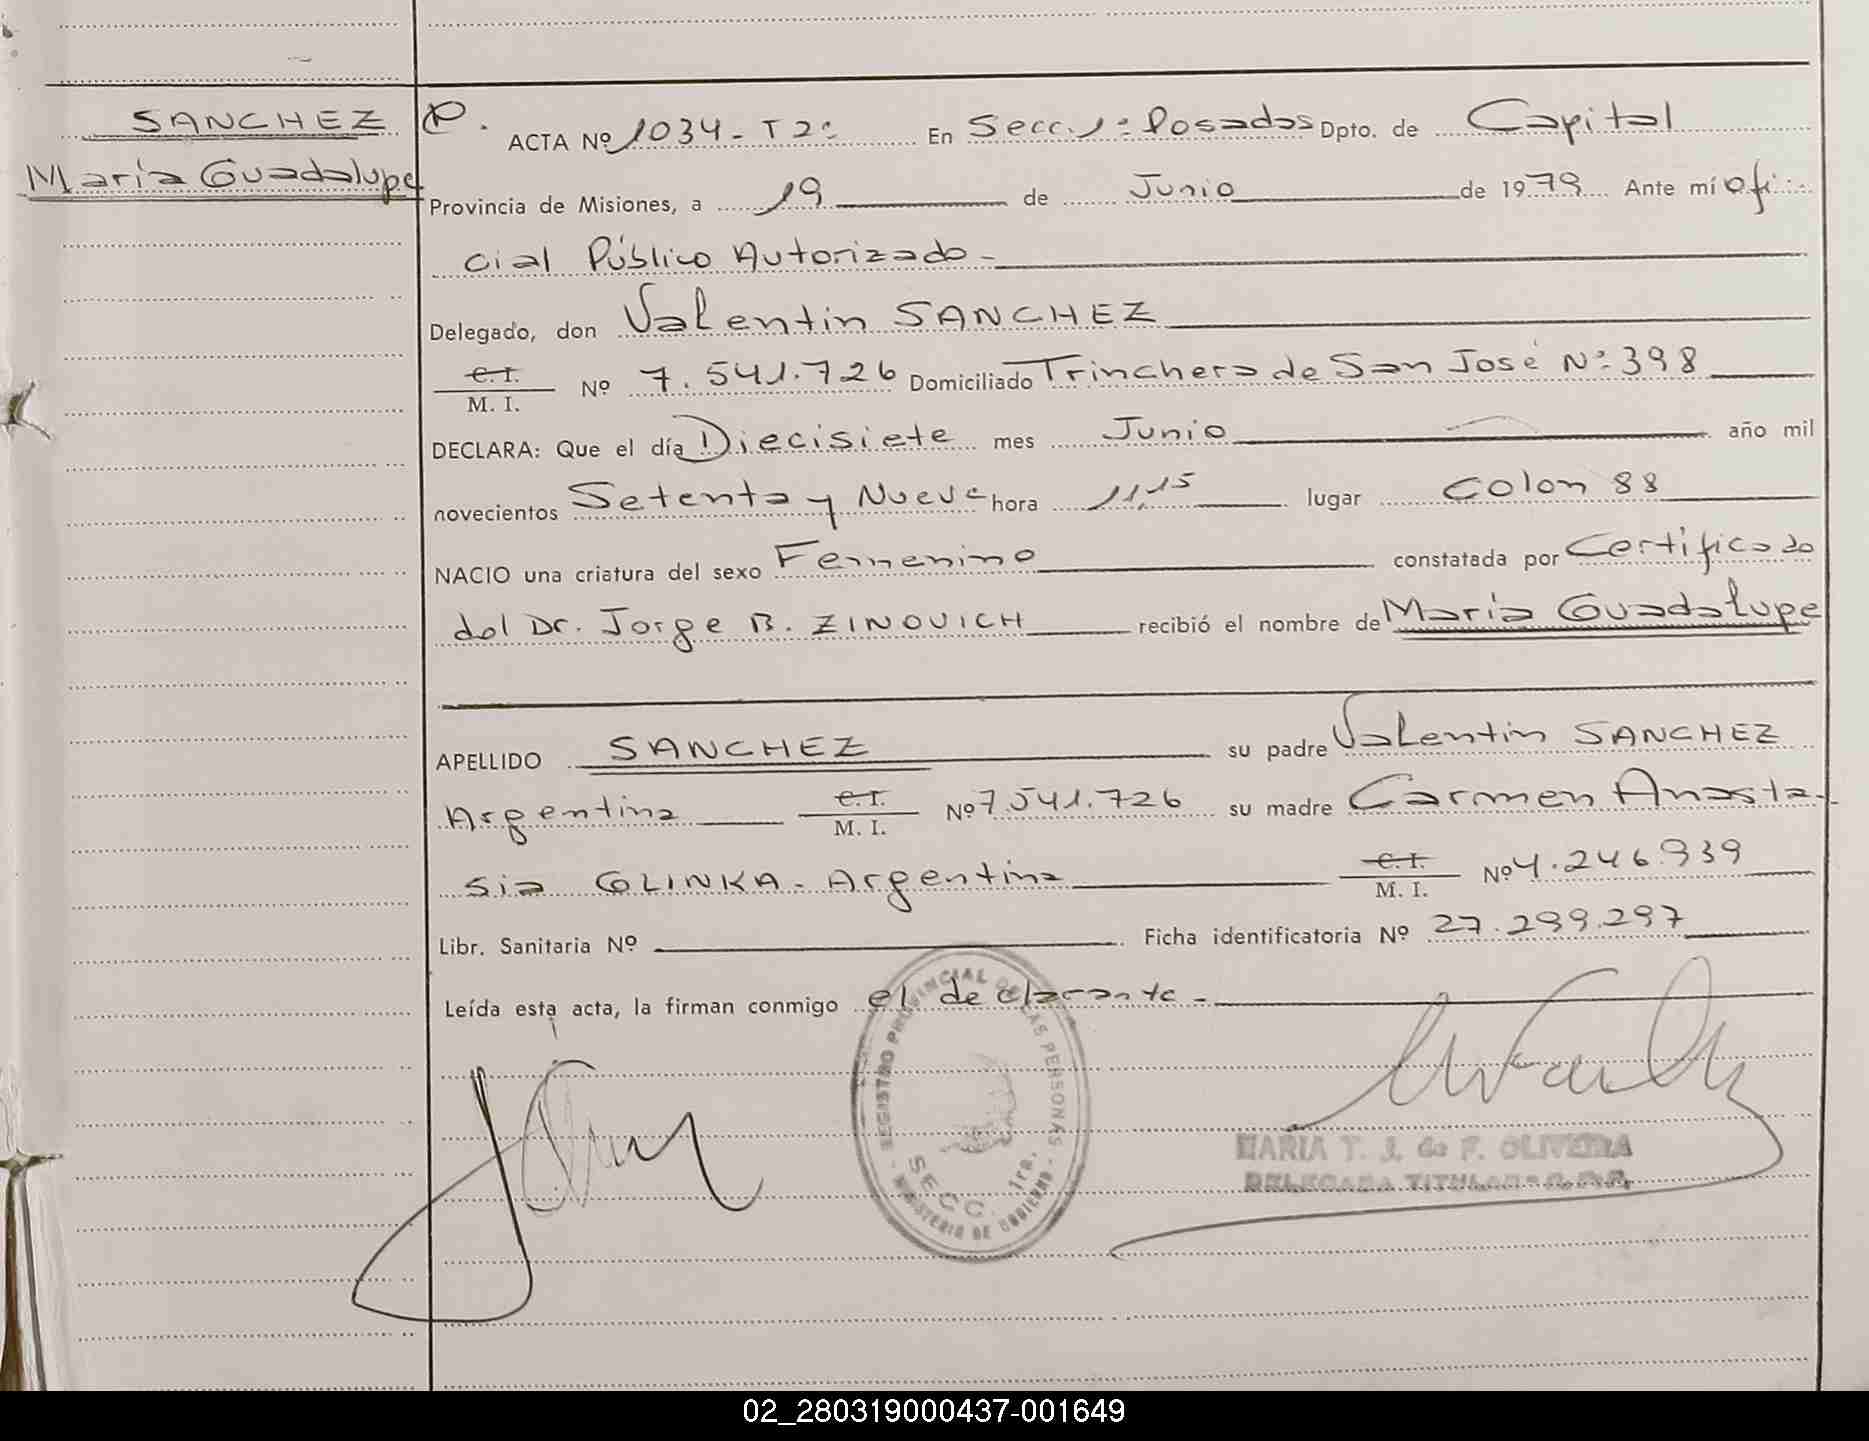 SANCHEZ
María Guadalupe
ACTA Nº 1034 - T 2º En Secc. 1º Posadas Dpto. de Capital
Provincia de Misiones, a 19 de Junio de 1979 Ante mí Ofi-
cial Público Autorizado -
Delegado, don Valentin SANCHEZ
C. I.
M. I. Nº 7.541.726 Domiciliado Trinchera de San José Nº 398
DECLARA: Que el día Diecisiete mes Junio año mil
novecientos Setenta y Nueve hora 11,15 lugar Colon 88
NACIO una criatura del sexo Femenino constatada por Certificado
del Dr. Jorge B. ZINOVICH recibió el nombre de María Guadalupe
APELLIDO SANCHEZ su padre Valentin SANCHEZ
Argentina C. I.
M. I. Nº 7541.726 su madre Carmen Anasta-
sia GLINKA - Argentina C. I.
M. I. Nº 4.246.939
Libr. Sanitaria Nº Ficha identificatoria Nº 27.299.297
Leída esta acta, la firman conmigo el declarante -
REGISTRO PROVINCIAL DE LAS PERSONAS
SECC. 1ra.
MINISTERIO DE GOBIERNO
MARIA T. J. de F. OLIVEIRA
DELEGADA TITULAR - R.P.P.
02_280319000437-001649